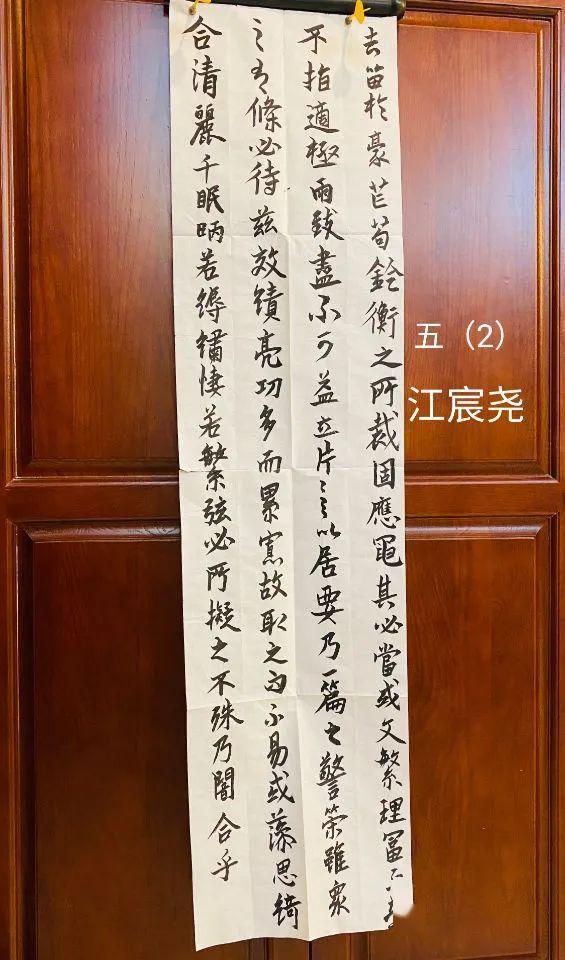 去畱於豪芒苟銓衡之所裁固應繩其必當或文繁理冨
不指適極兩致盡不可益立片言以居要乃一篇之警策雖衆
之有條必待茲效績亮功多而累寡故取之而不易或藻思綺
合清麗千眠昞若縟繡悽若繁弦必所擬之不殊乃闇合乎
五（2）
江宸尧